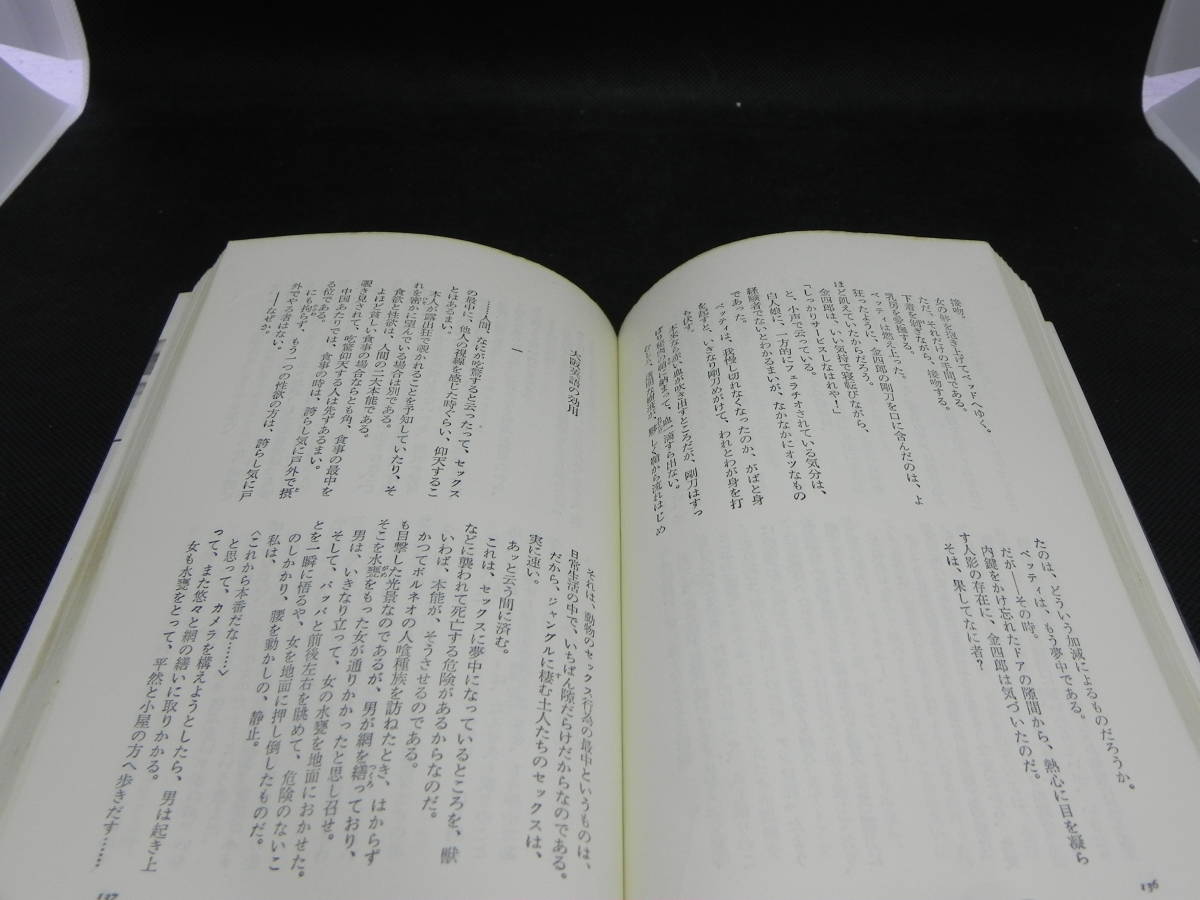 接吻。
女の躰を抱き上げてベッドへゆく。
ただ、それだけの手間である。
下着を剝ぎながら、接吻する。
乳房を愛撫する。
ベッティは燃え上った。
狂ったように、金四郎の剛刀を口に含んだのは、よ
ほど飢えていたからだろう。
金四郎は、いい気持で寝転びながら、
「しっかりサービスしなはれや！」
と、小声で云っている。
白人娘に、一方的にフェラチオされている気分は、
経験者でないとわかるまいが、なかなかにオツなもの
であった。
ベッティは、我慢し切れなくなったのか、がばと身
を起すと、いきなり剛刀めがけて、われとわが身を打
本来なら赤い血が吹き出すところだが、剛刀はすっ
ぽり肉の鞘に納まって、血一滴すら出ない。
たのは、どういう加減によるものだろうか。
ベッティは、もう夢中である。
だが――その時。
内鍵をかけ忘れたドアの隙間から、熱心に目を凝ら
す人影の存在に、金四郎は気づいたのだ。
そは、果してなに者？
136
大阪英語の効用
一
……人間、なにが吃驚すると云ったって、セックス
の最中に、他人の視線を感じた時ぐらい、仰天するこ
とはあるまい。
本人が露出狂で覗かれることを予知していたり、そ
れを密かに望んでいる場合は別である。
食欲と性欲は、人間の二大本能である。
よほど貧しい食事の場合ならとも角、食事の最中を
覗き見されて、吃驚仰天する人は先ずあるまい。
中国あたりでは、食事の時は、誇らし気に戸外で摂
る位である。
にも拘らず、もう一つの性欲の方は、誇らし気に戸
外でやる者はない。
――なぜか。
それは、動物のセックス行為の最中というものは、
日常生活の中で、いちばん隙だらけだからなのである。
だから、ジャングルに棲む土人たちのセックスは、
実に速い。
あッと云う間に済む。
これは、セックスに夢中になっているところを、獣
などに襲われて死亡する危険があるからなのだ。
いわば、本能が、そうさせるのである。
かつてボルネオの人喰種族を訪ねたとき、はからず
も目撃した光景なのであるが、男が網を繕っており、
そこを水甕をもった女が通りかかったと思し召せ。
男は、いきなり立って、女の水甕を地面におかせた。
そして、パッパと前後左右を眺めて、危険のないこ
とを一瞬に悟るや、女を地面に押し倒したものだ。
のしかかり、腰を動かしの、静止。
私は、
〈これから本番だな……〉
と思って、カメラを構えようとしたら、男は起き上
って、また悠々と網の繕いに取りかかる。
女も水甕をとって、平然と小屋の方へ歩きだす……
137